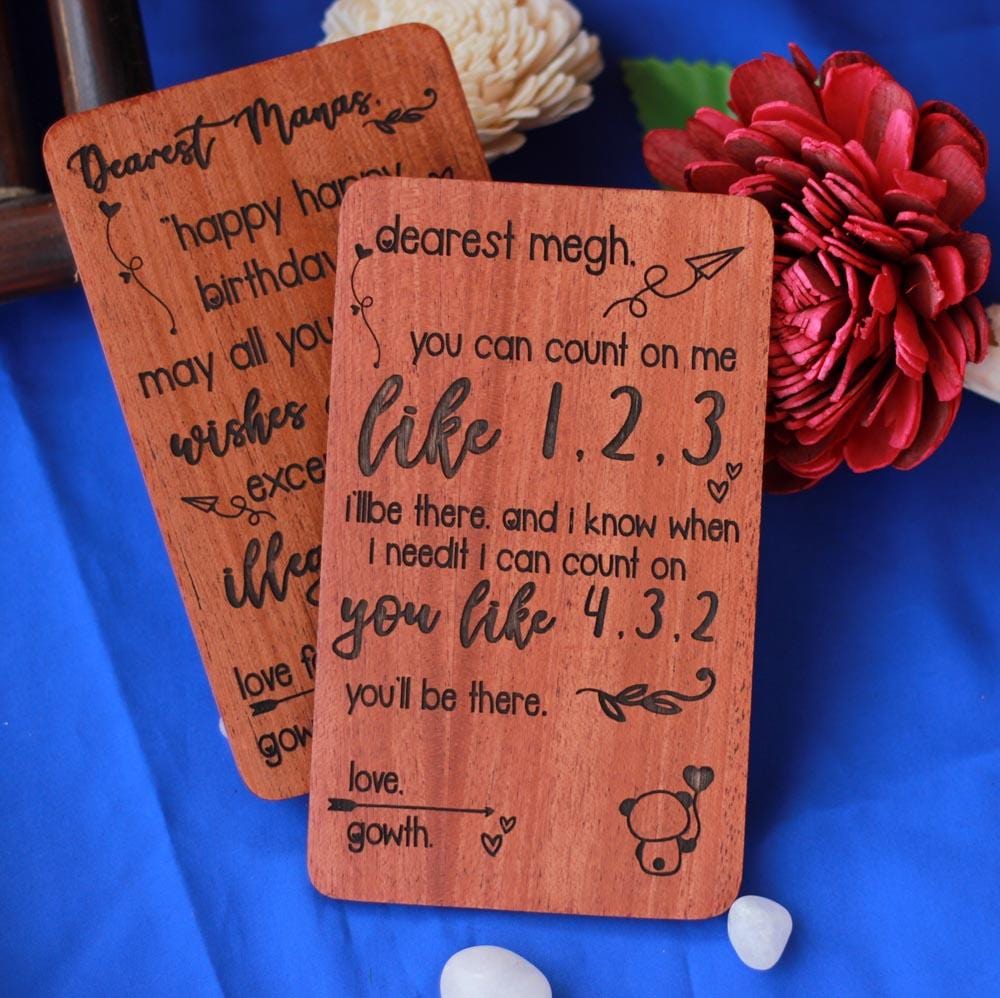 Dearest Manas,
"happy happy
birthday
may all you
wishes
exce
illeg
love f
gow
dearest megh.
you can count on me
like 1, 2, 3
i'llbe there. and i know when
i needit i can count on
you like 4, 3, 2
you'll be there.
love,
gowth.